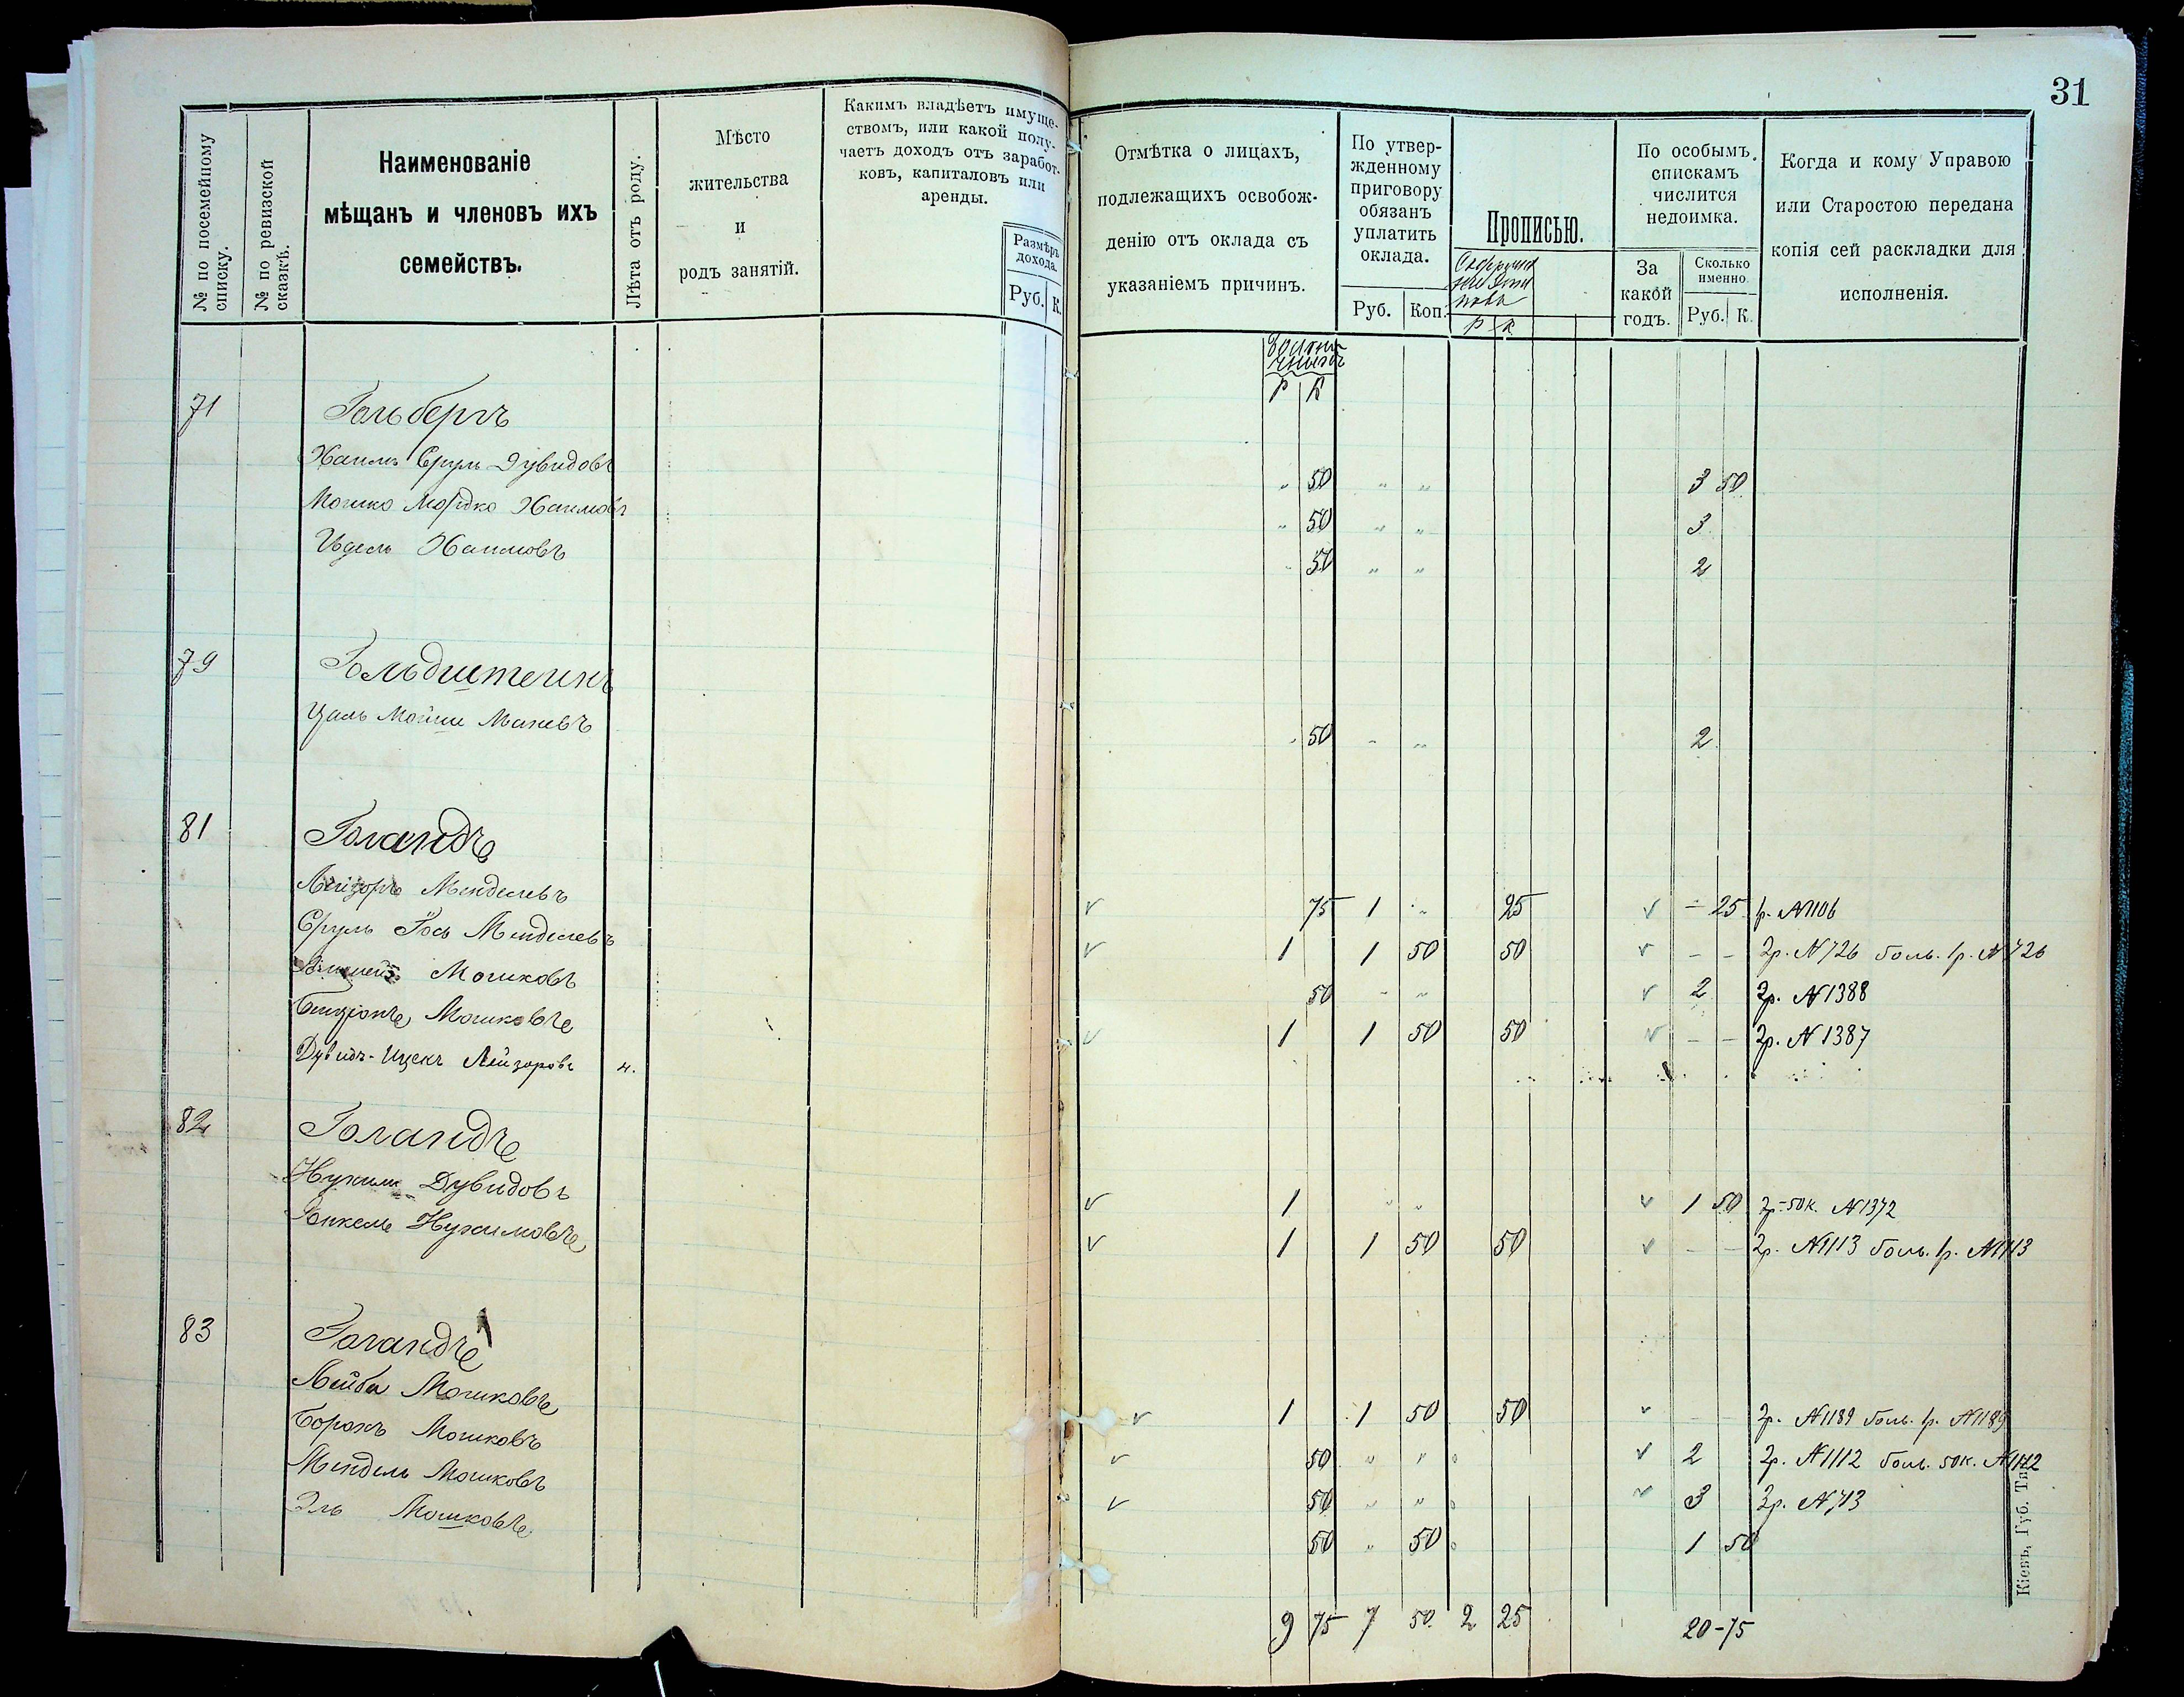 31
№ по посемейному списку.
№ по ревизской сказкѣ.
Наименованіе
мѣщанъ и членовъ ихъ
семействъ.
Лѣта отъ роду.
Мѣсто
жительства
и
родъ занятій.
Какимъ владѣетъ имуще-
ствомъ, или какой полу-
чаетъ доходъ отъ заработ-
ковъ, капиталовъ или
аренды.
Размѣръ
дохода.
Руб. К.
Отмѣтка о лицахъ,
подлежащихъ освобож-
денію отъ оклада съ
указаніемъ причинъ.
По утвер-
жденному
приговору
обязанъ
уплатить
оклада.
Руб. Коп.
Прописью.
Р К
По особымъ
спискамъ
числится
недоимка.
За
какой
годъ.
Сколько
именно.
Руб. К.
Когда и кому Управою
или Старостою передана
копія сей раскладки для
исполненія.
Р К
71 Гольбергъ
Хаимъ Сруль Дувидовъ " 50 " " 3 50
Мошко Мордко Хаимовъ " 50 " " 3
Хаимовъ " 50 " " 2
79 Гольдштейнъ
Цаль 50 " " 2
81 Голандъ
Лейзоръ Менделевъ 75 1 " 25 - 25 1р. №1106
Сруль Іось Менделевъ 1 1 50 50 - - 2р. №726 боль. 1р. №726
Мошковъ 50 " " 2 2р. №1388
Бенціонъ Мошковъ 1 1 50 50 - - 2р. №1387
Дувидъ-Ицекъ Лейзоровъ н.
82 Голандъ
Нухимъ Дувидовъ 1 " " 1 50 2р-50к. №1372
Янкель Нухимовъ 1 1 50 50 - - 2р. №1113 боль. 1р. №1113
83 Голандъ
Лейба Мошковъ 1 1 50 50 - - 2р. №1189 боль. 1р. №1189
Борохъ Мошковъ 50 " " 2 2р. №1112 боль. 50к. №1112
Мендель Мошковъ 50 " " 3 3р. №713
Эль Мошковъ 50 " 50 1 50
9 75 7 50 2 25 20-75
Кіевъ, Губ. Тип.